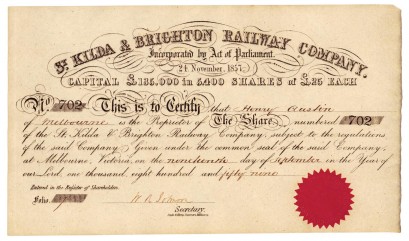 St. KILDA & BRIGHTON RAILWAY COMPANY.
Incorporated by Act of Parliament.
24 November, 1857.
CAPITAL £135,000 in 5,400 SHARES of £25 EACH
No. 702 This is to Certify that Henry Austin
of Melbourne is the Proprietor of The Share numbered 702
of the St. Kilda & Brighton Railway Company, subject to the regulations
of the said Company; Given under the common seal of the said Company,
at Melbourne, Victoria, on the nineteenth day of September in the Year of
our Lord, one thousand eight hundred and fifty nine
Entered in the Register of Shareholders.
Folio
Secretary.